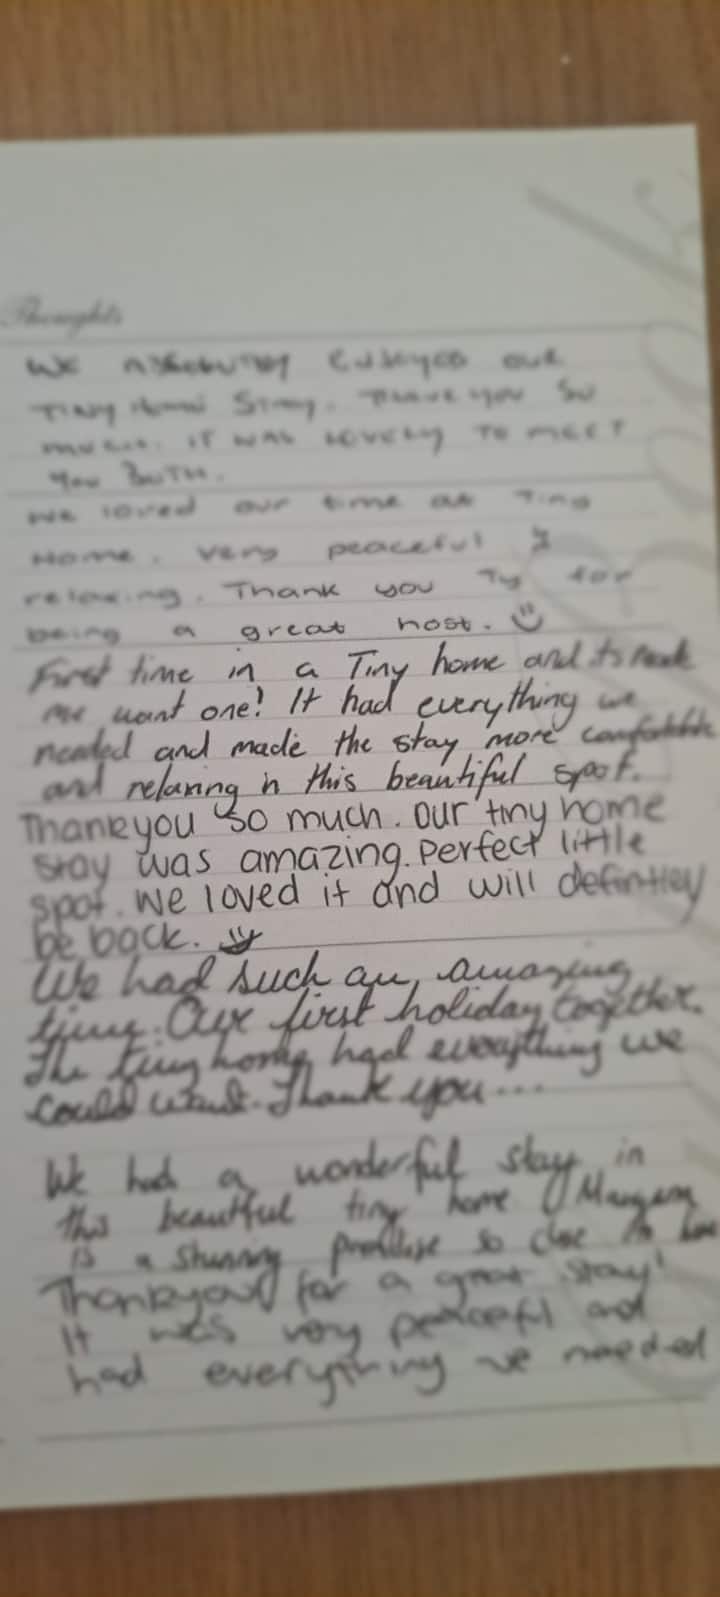 Thoughts
WE ABSOLUTELY ENJOYED OUR
TINY HOME STAY. THANK YOU SO
MUCH. IT WAS LOVELY TO MEET
YOU BOTH.
We loved our time at Tiny
Home. Very peaceful &
relaxing. Thank you Ty for
being a great host. ☺
First time in a Tiny home and its made
me want one! It had everything we
needed and made the stay more comfortable
and relaxing in this beautiful spot.
Thankyou so much. Our tiny home
stay was amazing. Perfect little
spot. We loved it and will defintley
be back.
We had such an amazing
time. Our first holiday together.
The tiny home had everything we
could want. Thank you...
We had a wonderful stay in
this beautiful tiny home
is a stunning so close to
Thankyou for a great stay!
It was very peaceful and
had everything we needed